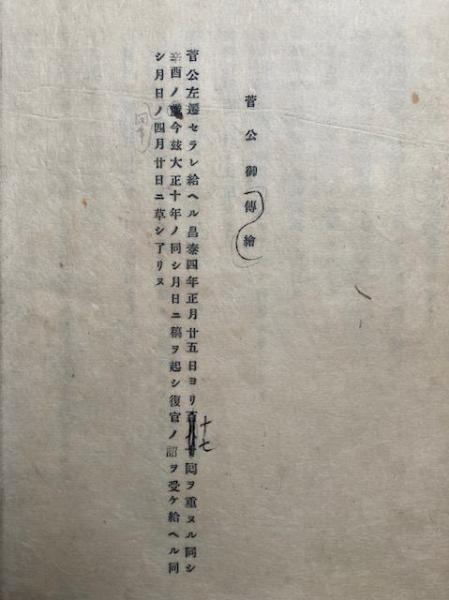 菅公御傳繪
菅公左遷セラレ給ヘル昌泰四年正月廿五日ヨリ十七回ヲ重ヌル同シ
辛酉ノ今玆大正十年ノ同シ月日ニ稿ヲ起シ復官ノ詔ヲ受ケ給ヘル同
シ月日ノ四月廿日ニ草シ了リヌ